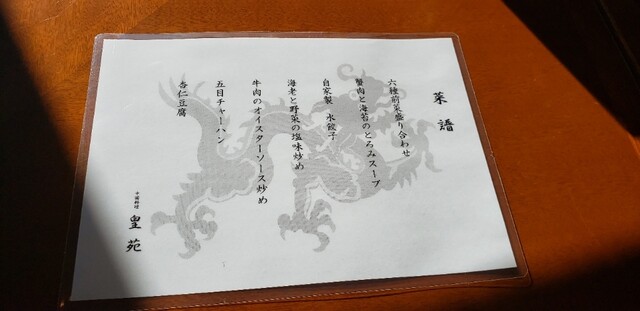 菜譜
六種前菜盛り合わせ
蟹肉と海苔のとろみスープ
自家製 水餃子
海老と野菜の塩味炒め
牛肉のオイスターソース炒め
五目チャーハン
杏仁豆腐
中国料理 皇苑